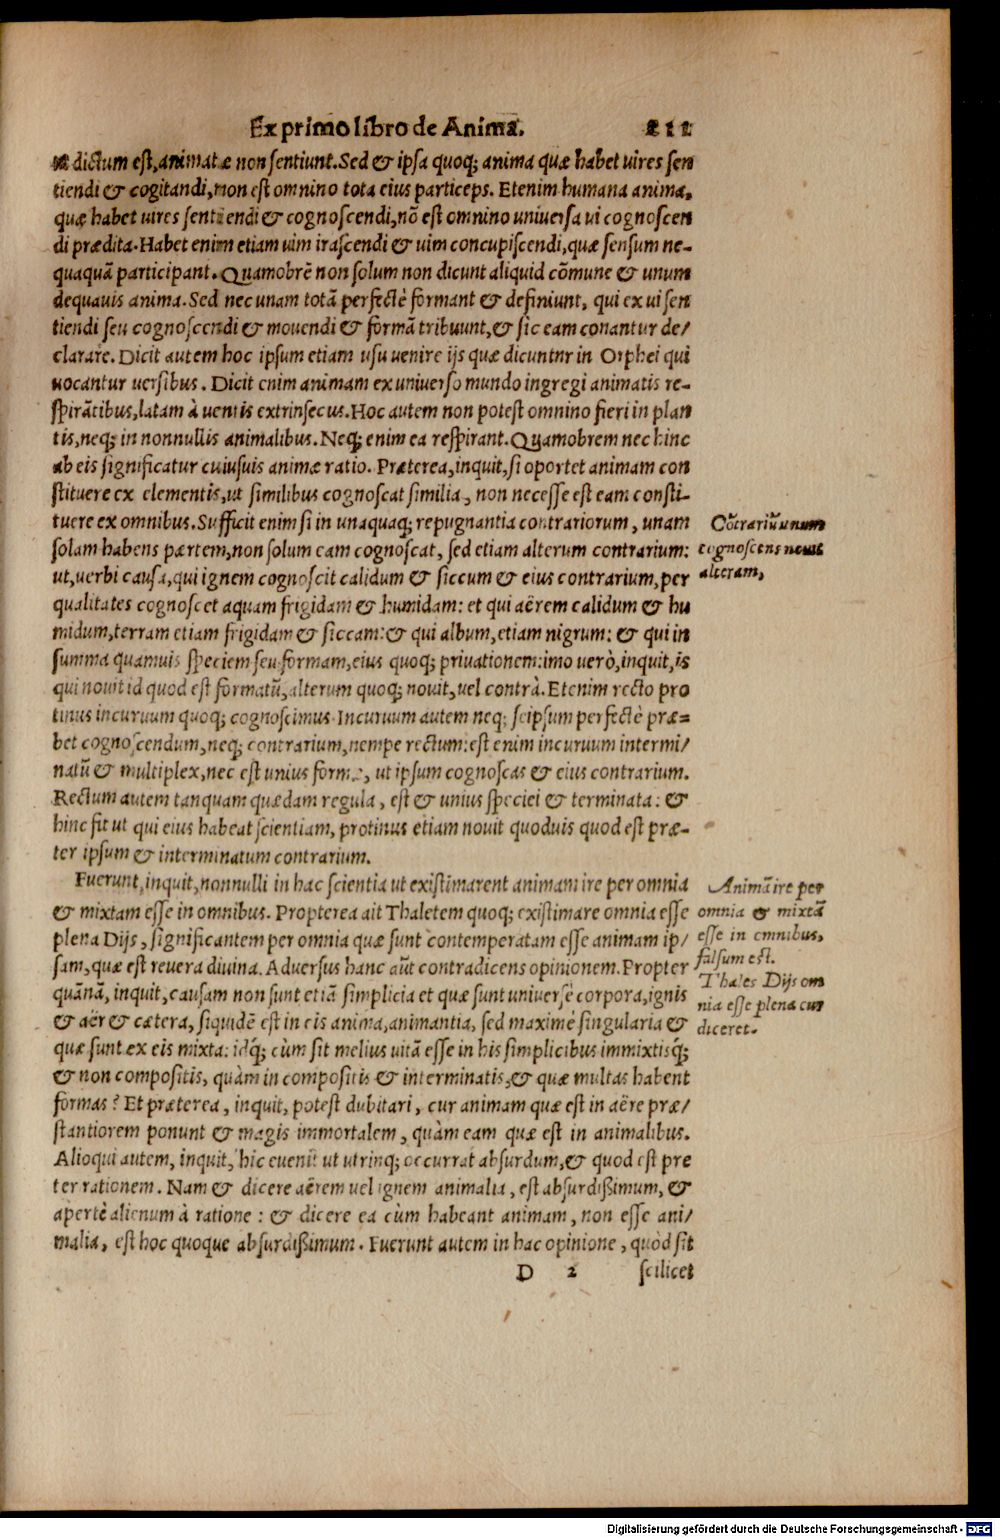 Ex primo libro de Anima. 211
ut dictum est, animatæ non sentiunt. Sed & ipsa quoq; anima quæ habet uires sen
tiendi & cogitandi, non est omnino tota eius particeps. Etenim humana anima,
quæ habet uires sentiendi & cognoscendi, nõ est omnino uniuersa ui cognoscen
di prædita. Habet enim etiam uim irascendi & uim concupiscendi, quæ sensum ne-
quaquã participant. Quamobrẽ non solum non dicunt aliquid cõmune & unum
dequauis anima. Sed nec unam totã perfectè formant & definiunt, qui ex ui sen
tiendi seu cognoscendi & mouendi & formã tribuunt, & sic eam conantur de/
clarare. Dicit autem hoc ipsum etiam usu uenire ijs quæ dicuntnr in Orphei qui
uocantur uersibus. Dicit enim animam ex uniuerso mundo ingregi animatis re-
spirãtibus, latam à uentis extrinsecus. Hoc autem non potest omnino fieri in plan
tis, neq; in nonnullis animalibus. Neq; enim ea respirant. Quamobrem nec hinc
ab eis significatur cuiusuis animæ ratio. Præterea, inquit, si oportet animam con
stituere ex elementis, ut similibus cognoscat similia, non necesse est eam consti-
tuere ex omnibus. Sufficit enim si in unaquaq; repugnantia contrariorum, unam
solam habens partem, non solum eam cognoscat, sed etiam alterum contrarium:
ut, uerbi causa, qui ignem cognoscit calidum & siccum & eius contrarium, per
qualitates cognoscet aquam frigidam & humidam: et qui aërem calidum & hu
midum, terram etiam frigidam & siccam: & qui album, etiam nigrum: & qui in
summa quamuis speciem seu formam, eius quoq; priuationem: imo uerò, inquit, is
qui nouit id quod est formatũ, alterum quoq; nouit, uel contrà. Etenim recto pro
tinus incuruum quoq; cognoscimus. Incuruum autem neq; seipsum perfectè præ=
bet cognoscendum, neq; contrarium, nempe rectum: est enim incuruum intermi/
natũ & multiplex, nec est unius formæ, ut ipsum cognoscas & eius contrarium.
Rectum autem tanquam quædam regula, est & unius speciei & terminata: &
hinc fit ut qui eius habeat scientiam, protinus etiam nouit quoduis quod est præ-
ter ipsum & interminatum contrarium.
Fuerunt, inquit, nonnulli in hac scientia ut existimarent animam ire per omnia
& mixtam esse in omnibus. Propterea ait Thaletem quoq; existimare omnia esse
plena Dijs, significantem per omnia quæ sunt contemperatam esse animam ip/
sam, quæ est reuera diuina. Aduersus hanc aũt contradicens opinionem. Propter
quãnã, inquit, causam non sunt etiã simplicia et quæ sunt uniuersè corpora, ignis
& aër & cætera, siquidẽ est in eis anima, animantia, sed maximè singularia &
quæ sunt ex eis mixta: idq́; cùm sit melius uitã esse in his simplicibus immixtisq́;
& non compositis, quàm in compositis & interminatis, & quæ multas habent
formas? Et præterea, inquit, potest dubitari, cur animam quæ est in aëre præ/
stantiorem ponunt & magis immortalem, quàm eam quæ est in animalibus.
Alioqui autem, inquit, hic euenit ut utrinq; occurrat absurdum, & quod est præ
ter rationem. Nam & dicere aërem uel ignem animalia, est absurdißimum, &
apertè alienum à ratione: & dicere ea cùm habeant animam, non esse ani/
malia, est hoc quoque absurdißimum. Fuerunt autem in hac opinione, quòd sit
D 2 scilicet
Cõtrariũ unum
cognoscens nouit
alterum,
Animã ire per
omnia & mixtã
esse in omnibus,
falsum est.
Thales Dijs om
nia esse plena cur
diceret.
Digitalisierung gefördert durch die Deutsche Forschungsgemeinschaft - DFG